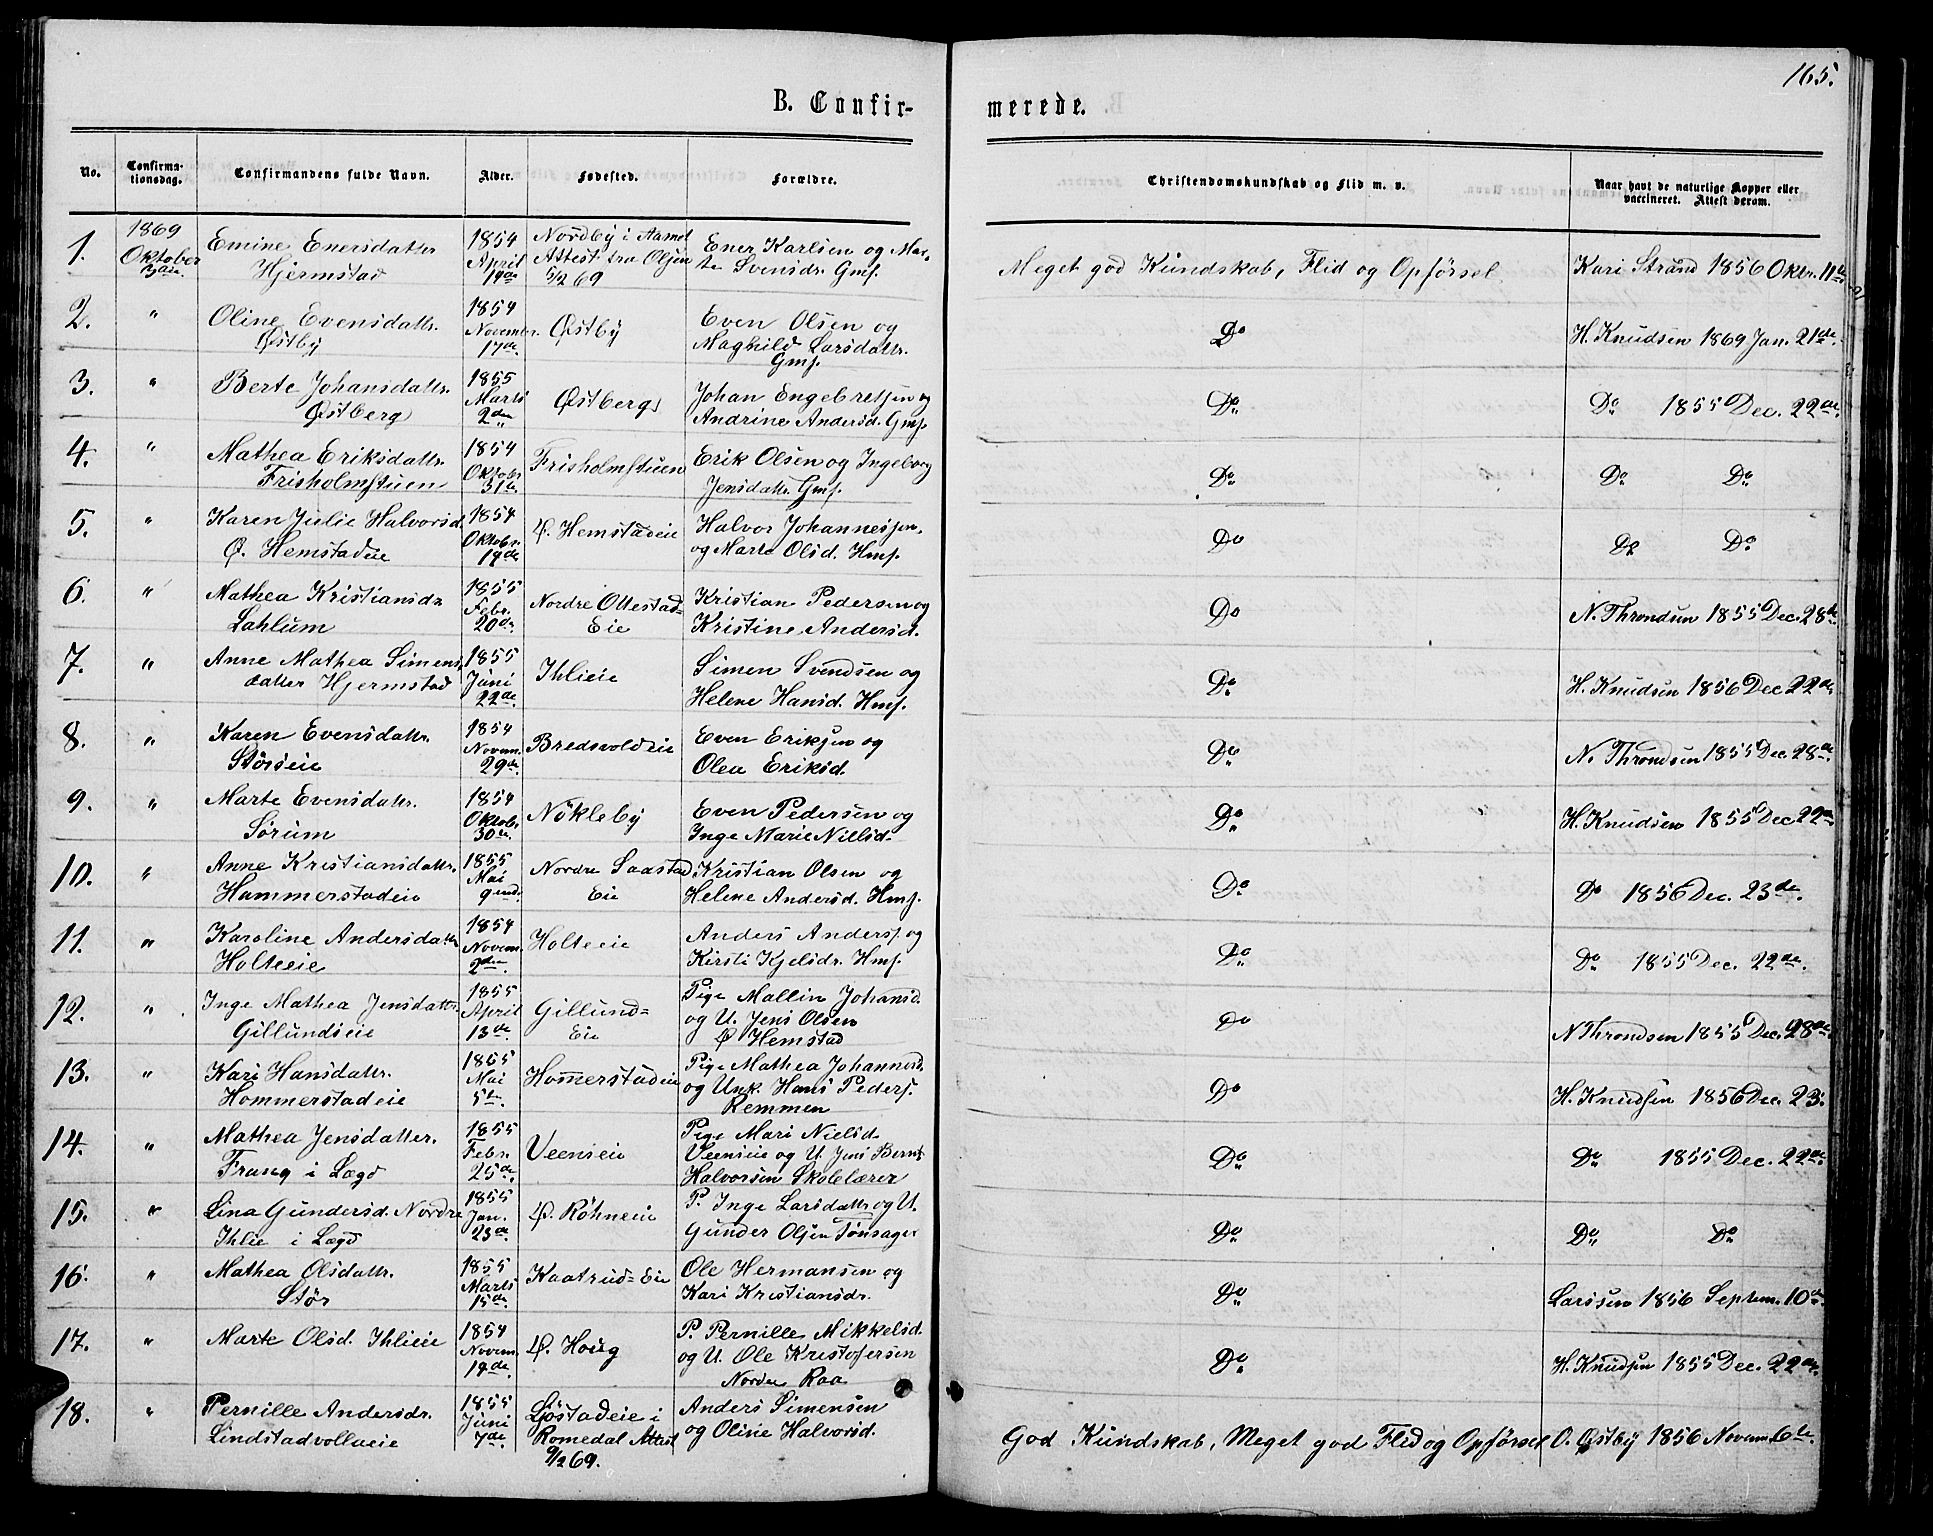 165.
B. Confirmerede.
No. | Confirmationsdag. | Confirmandens fulde Navn. | Alder. | Fødested. | Forældre. | Christendomskundskab og Flid m. v. | Naar havt de naturlige Kopper eller vaccineret. Attest derom.
1. | 1869 Oktober 3die | Emine Enersdatter Hjermstad | 1854 April 19de | Nordby i Aamot Attest fra Olsen 5/2 69 | Ener Karlsen og Marte Svensdr. Gmf. | Meget god Kundskab, Flid og Opførsel | Kari Strand 1856 Oktr. 11te
2. | " | Oline Evensdattr. Østby | 1854 November 17de | Østby | Even Olsen og Maghild Larsdattr. Gmf. | Do | H. Knudsen 1869 Jan. 21de.
3. | " | Berte Johansdattr. Østberg | 1855 Marts 2den | Østberg | Johan Engebretsen og Andrine Andersd. Gmf. | Do | Do 1855 Dec. 22de.
4. | " | Mathea Eriksdattr. Frisholmstuen | 1854 Oktobr 31te | Frisholmstuen | Erik Olsen og Ingeborg Jensdattr. Gmf. | Do | Do Do
5. | " | Karen Julie Halvorsd. Ø. Hemstadeie | 1854 Oktobr. 19de | Ø. Hemstadeie | Halvor Johannesen og Marte Olsd. Hmf. | Do | Do Do
6. | " | Mathea Kristiansdr Sahlum | 1855 Febr. 20de | Nordre Ottestad= Eie | Kristian Pedersen og Kristine Andersd. | Do | N. Throndsen 1855 Dec. 28de
7. | " | Anne Mathea Simens datter Hjermstad | 1855 Juni 22de | Ihlieie | Simen Svendsen og Helene Hansd. Hmf. | Do | H. Knudsen 1856 Dec 22de
8. | " | Karen Evensdattr. Störseie | 1854 Novem. 29de | Bredvoldeie | Even Eriksen og Olea Eriksd. | Do | N. Throndsen 1855 Dec. 28de
9. | " | Marte Evensdattr. Sörum | 1854 Oktobr 30te | Nökleby | Even Pedersen og Inge Marie Nielsd. | Do | H. Knudsen 1855 Dec 22de
10. | " | Anne Kristiansdattr. Hammerstadeie | 1855 Mai 9ende | Nordre Saastad Eie | Kristian Olsen og Helene Andersd. Hmf. | Do | Do 1856 Dec. 23de.
11. | " | Karoline Andersdattr Holteeie | 1854 Novem. 2den | Holteeie | Anders Andersf. og Kirsti Kjelsdr. Hmf. | Do | Do 1855 Dec. 22de.
12. | " | Inge Mathea Jensdattr. Gillundseie | 1855 April 13de | Gillund= Eie | Pige Mallin Johansd. og U. Jens Olsen Ø Hemstad | Do | N Throndsen 1855 Dec. 28de
13. | " | Kari Hansdattr. Hommerstadeie | 1855 Mai 5te | Homerstadeie | Pige Mathea Johannesd. og Unk. Hans Pedersf. Remmen | Do | H. Knudsen 1856 Dec. 23.
14. | " | Mathea Jensdatter. Frang i Lægd | 1855 Febr. 25de | Veenseie | Pige Mari Nielsd. Veenseie og U. Jens Bernt Halvorsen Skolelærer | Do | Do 1855 Dec. 22de
15. | " | Lina Gundersd. Nordre Ihlie i Lægd | 1855 Jan. 23de | Ø. Röhneeie | P. Inge Larsdattr og U. Gunder Olsen Tønsager | Do | Do Do
16. | " | Mathea Olsdattr. Stör | 1855 Marts 15de | Kaatrud=Eie | Ole Hermansen og Kari Kristiansdr. | Do | Larssen 1856 Septem. 10de
17. | " | Marte Olsd. Ihlieie | 1854 Novem. 19de. | Ø. Houg | P. Pernille Mikkelsd. og U. Ole Kristofersen Nordre Raa | Do | H. Knudsen 1855 Dec. 22de
18. | " | Pernille Andersdr. Lindstadvollaeie | 1855 Juni 7de | Ljöstadeie i Romedal Attest 9/2 69. | Anders Simensen og Oline Halvorsd. | God Kundskab, Meget god Flid og Opførsel | O. Østby 1856 Novem. 6te.